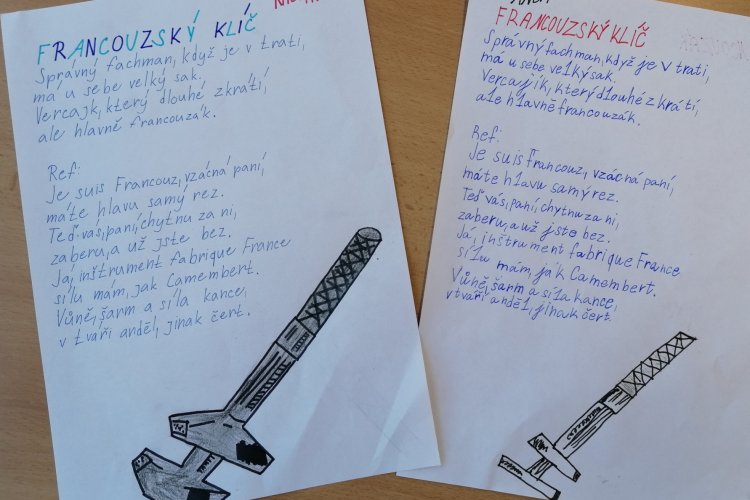 FRANCOUZSKÝ KLÍČ
Správný fachman, když je v trati,
má u sebe velký sak.
Vercajk, který dlouhé zkrátí,
ale hlavně francouzák.
Ref:
Je suis Francouz, vzácná paní,
máte hlavu samý rez.
Teď vás, paní, chytnu za ni,
zaberu, a už jste bez.
Já, inštrument fabrique France
sílu mám, jak Camembert.
Vůně, šarm a síla kance,
v tváři anděl, jinak čert.
FRANCOUZSKÝ KLÍČ
Správný fachman, když je v trati,
má u sebe velký sak.
Vercajík, který dlouhé zkrátí,
ale hlavně francouzák.
Ref:
Je suis Francouz, vzácná paní,
máte hlavu samý rez.
Teď vás, paní, chytnu za ni,
zaberu, a už jste bez.
Já, inštrument fabrique France
sílu mám, jak Camembert.
Vůně, šarm a síla kance,
v tváři anděl, jinak čert.